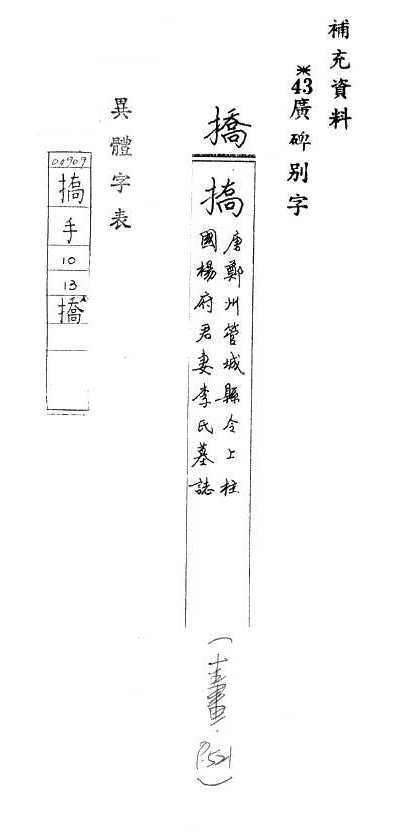 補充資料
※43廣碑別字
撟
搞
唐鄭州管城縣令上柱
國楊府君妻李氏墓誌
(圭畫．P.521)
異體字表
04909
搞
手
10
13
撟